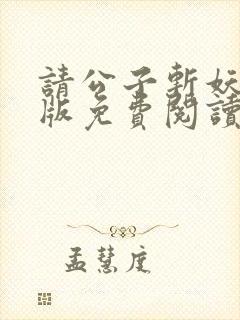 請公子斬妖
版免費閱讀
孟慧庭